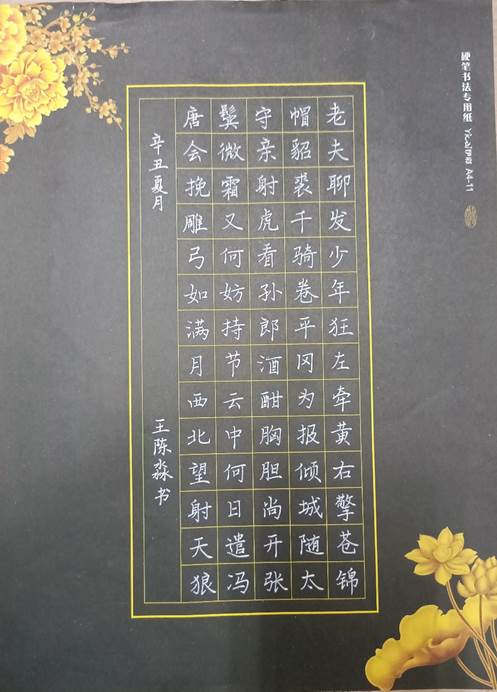 硬笔书法专用纸 A4-11
老夫聊发少年狂左牵黄右擎苍锦
帽貂裘千骑卷平冈为报倾城随太
守亲射虎看孙郎酒酣胸胆尚开张
鬓微霜又何妨持节云中何日遣冯
唐会挽雕弓如满月西北望射天狼
辛丑夏月 王陈淼书